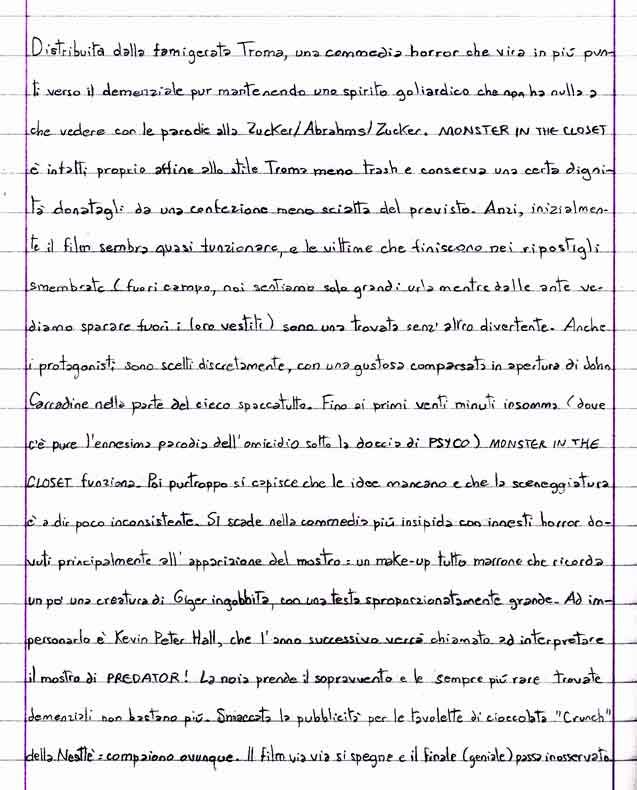 Distribuita dalla famigerata Troma, una commedia horror che vira in più pun-
ti verso il demenziale pur mantenendo uno spirito goliardico che non ha nulla a
che vedere con le parodie alla Zucker/Abrahms/Zucker. MONSTER IN THE CLOSET
è infatti proprio affine allo stile Troma meno trash e conserva una certa digni-
tà donatagli da una confezione meno sciatta del previsto. Anzi, inizialmen-
te il film sembra quasi funzionare, e le vittime che finiscono nei ripostigli
smembrate (fuori campo, noi sentiamo solo grandi urla mentre dalle ante ve-
diamo sparare fuori i loro vestiti) sono una trovata senz'altro divertente. Anche
i protagonisti sono scelti discretamente, con una gustosa comparsata in apertura di John
Carradine nella parte del cieco spaccatutto. Fino ai primi venti minuti insomma (dove
c'è pure l'ennesima parodia dell'omicidio sotto la doccia di PSYCO) MONSTER IN THE
CLOSET funziona. Poi purtroppo si capisce che le idee mancano e che la sceneggiatura
è a dir poco inconsistente. Si scade nella commedia più insipida con innesti horror do-
vuti principalmente all'apparizione del mostro: un make-up tutto marrone che ricorda
un po' una creatura di Giger ingobbita, con una testa sproporzionatamente grande. Ad im-
personarlo è Kevin Peter Hall, che l'anno successivo verrà chiamato ad interpretare
il mostro di PREDATOR! La noia prende il sopravvento e le sempre più rare trovate
demenziali non bastano più. Smaccata la pubblicità per le tavolette di cioccolata "Crunch"
della Nestlè: compaiono ovunque. Il film via via si spegne e il finale (geniale) passa inosservato